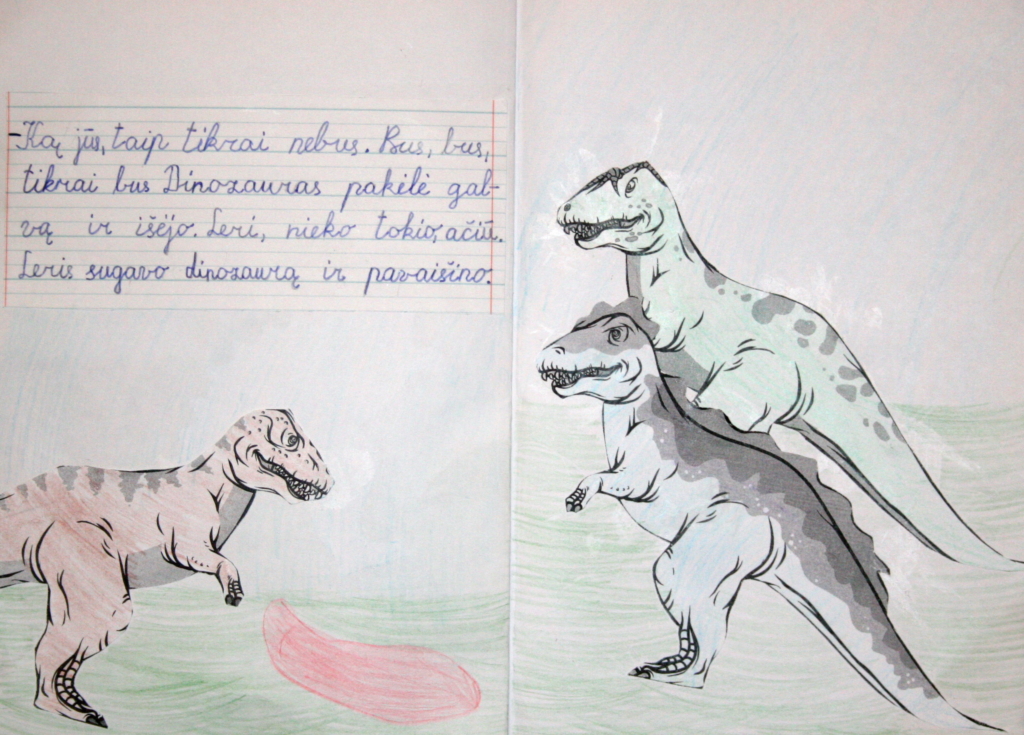 -Ką jūs, taip tikrai nebus. Bus, bus,
tikrai bus Dinozauras pakėlė gal-
vą ir išėjo. Leri, nieko tokio, ačiū.
Leris sugavo dinozaurą ir pavaišino.